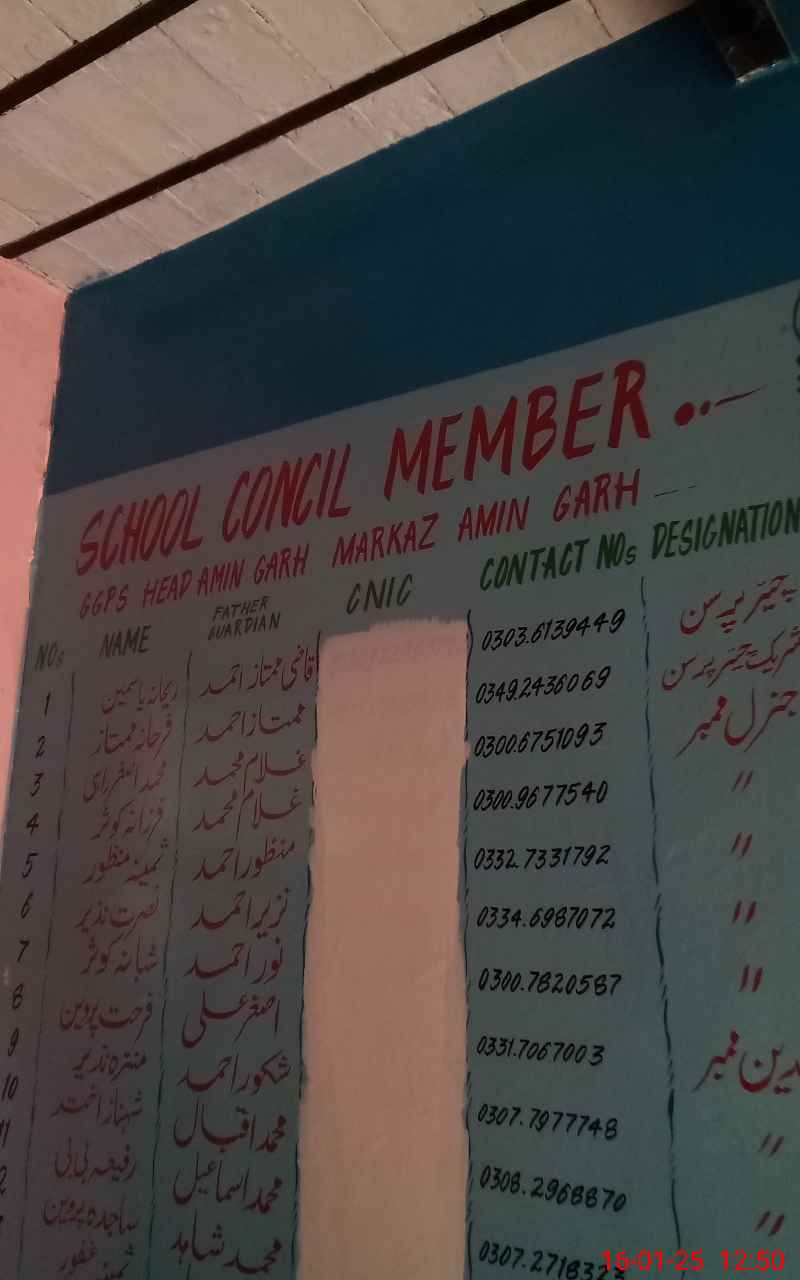 SCHOOL CONCIL MEMBER
GGPS HEAD AMIN GARH MARKAZ AMIN GARH
NOs NAME FATHER GUARDIAN CNIC CONTACT NOs DESIGNATION
1 ریحانہ یاسمین قاضی ممتاز احمد 0303.6139449 چیئر پرسن
2 فرحانہ ممتاز ممتاز احمد 0349.2436069 شریک چیئر پرسن
3 محمد اصغر راہی غلام محمد 0300.6751093 جنرل ممبر
4 فرزانہ کوثر غلام محمد 0300.9677540 "
5 ثمینہ منظور منظور احمد 0332.7331792 "
6 نصرت نذیر نزیر احمد 0334.6987072 "
7 شبانہ کوثر نور احمد 0300.7820587 "
8 فرحت پروین اصغر علی 0331.7067003 ممبر
9 نذیر شکور احمد 0307.7977748 "
10 شہناز اختر محمد اقبال 0308.2968870 "
11 رفیعہ بی بی محمد اسماعیل 0307.271832
2 ساجدہ پروین محمد شاہد
غفور
16-01-25 12:50